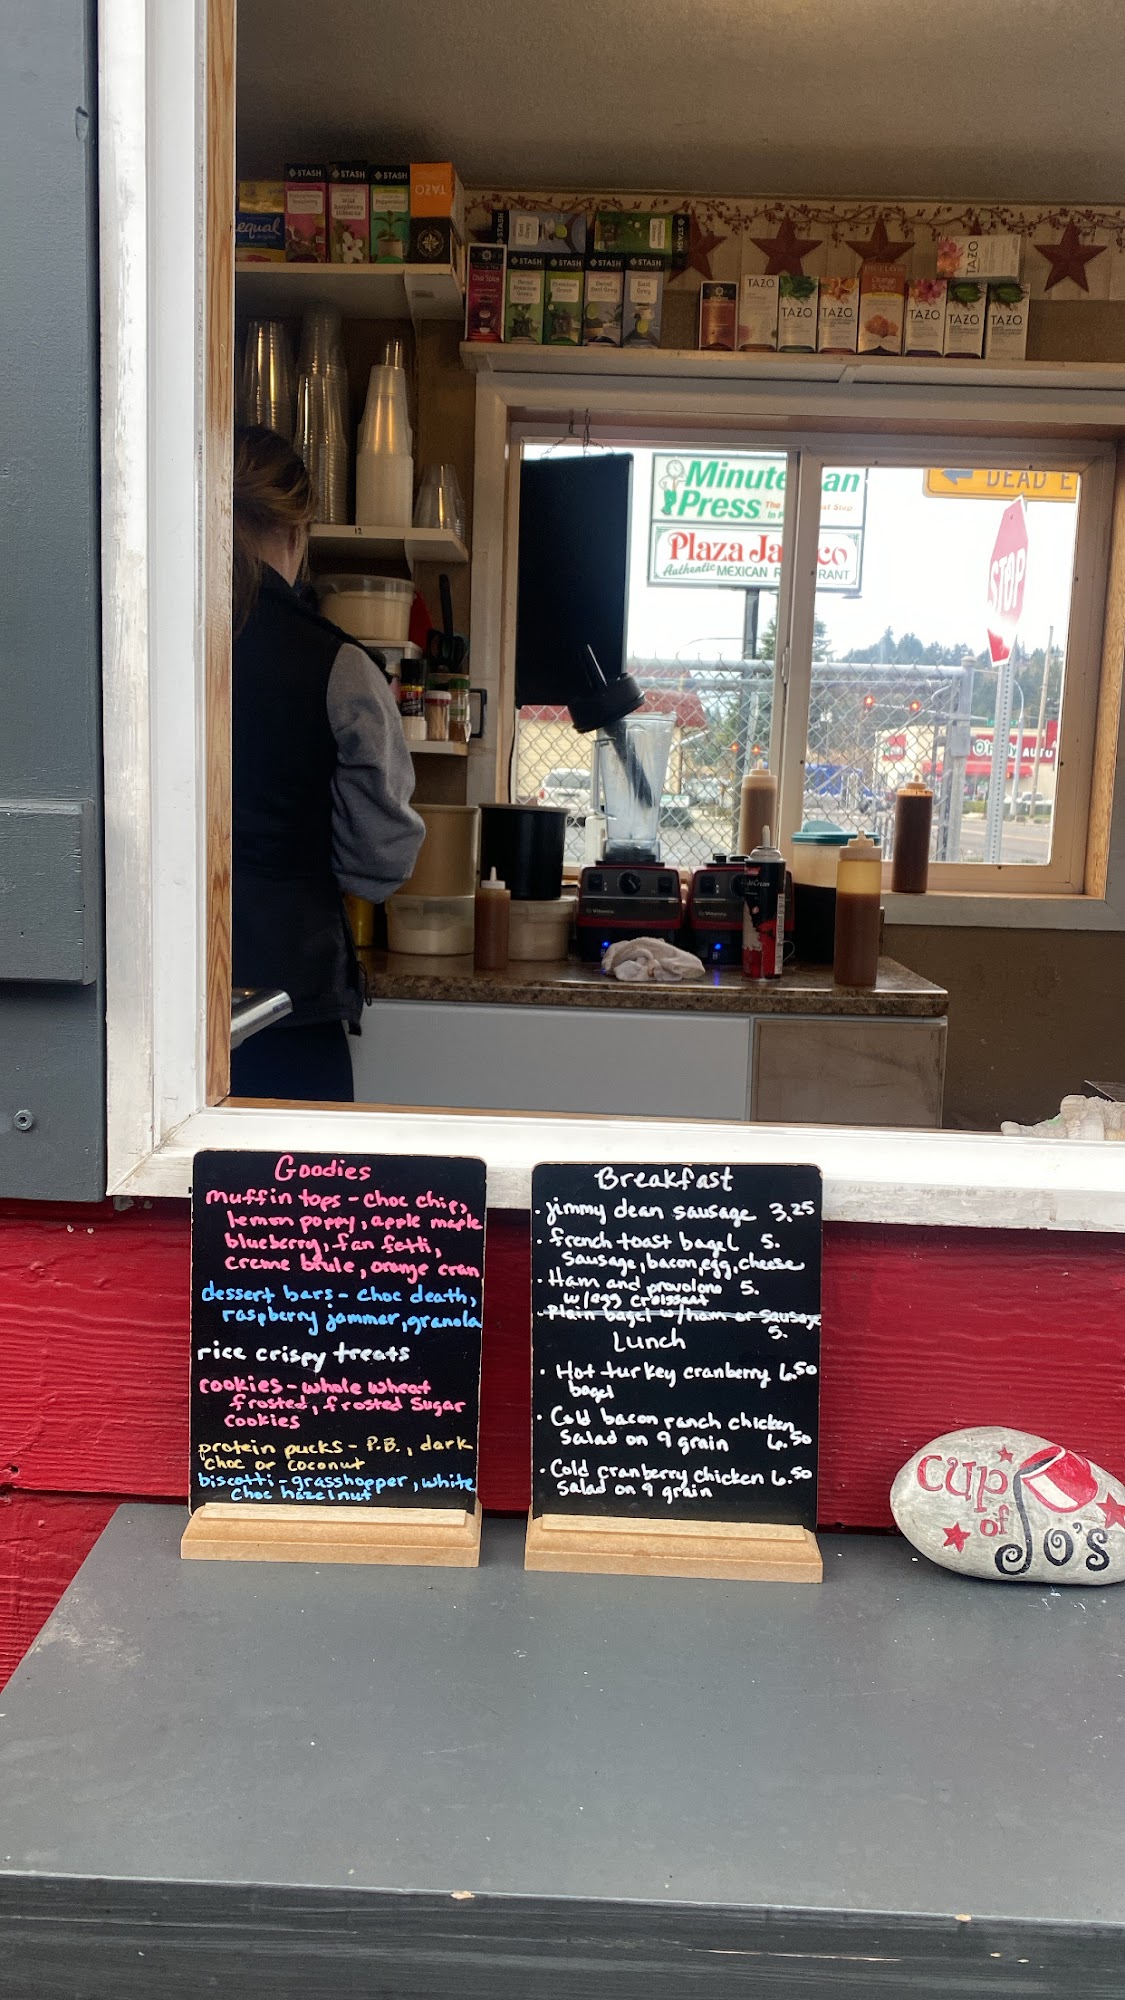 STASH
STASH
STASH
TAZO
equal
Wild
Raspberry
Hibiscus
Peppermint
STASH
Earl
Grey
STASH
STASH
STASH
STASH
STASH
Chai Spice
Premium
Green
Decaf
Earl Grey
Earl
Grey
TAZO
TAZO
TAZO
TAZO
TAZO
TAZO
TAZO
12
Minute an
Press The
Plaza Ja co
Authentic MEXICAN R RANT
DEAD E
STOP
O'R AUTO
Vitamix
Vitamix
Goodies
muffin tops - choc chip,
lemon poppy, apple maple
blueberry, fun fetti,
creme brule, orange cran
dessert bars - choc death,
raspberry jammer, granola
rice crispy treats
cookies - whole wheat
frosted, frosted sugar
cookies
protein pucks - P.B., dark
choc or coconut
biscotti - grasshopper, white
choc hazelnut
Breakfast
· jimmy dean sausage 3.25
· french toast bagel 5.
sausage, bacon, egg, cheese
· Ham and provolone 5.
w/egg croissant
· Plain bagel w/ham or sausage
5.
Lunch
· Hot turkey cranberry 6.50
bagel
· Cold bacon ranch chicken
salad on 9 grain 6.50
· Cold cranberry chicken 6.50
salad on 9 grain
cup
of
Jo's